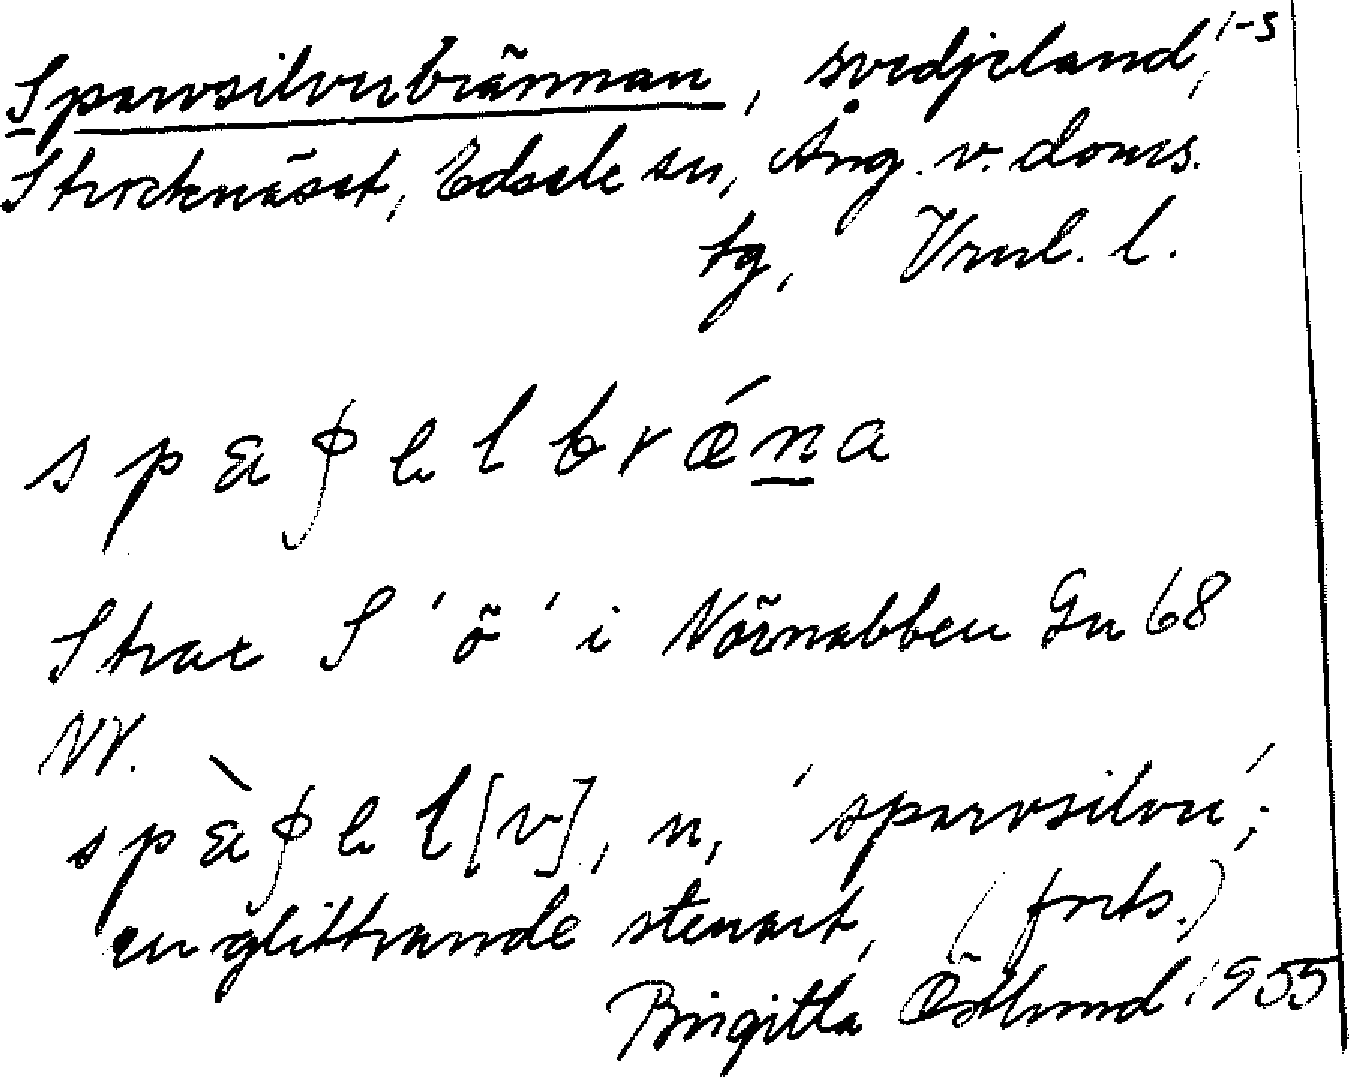 Sparvsilverbrännan, svedjeland, 1-3
Stocknäset, Edsele sn, Ång. v. doms.
tg, Vrnl. l.
s p a ϕ e l b r ǽ n a
Strax S 'ö' i Nörnabben Gn 68
NV.
s p à ϕ e l [v], n, 'sparvsilver';
en glittrande stenart, (forts.)
Birgitta Östlund 1955